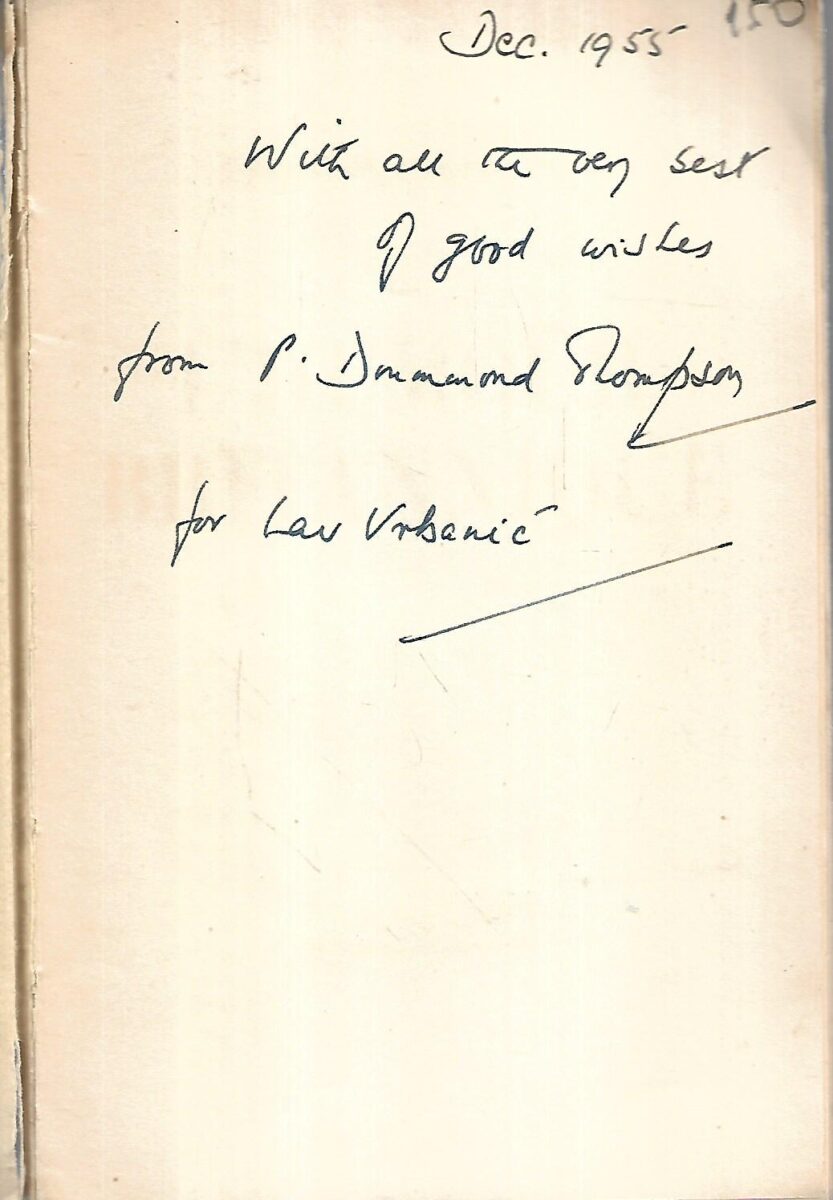 Dec. 1955 150
With all the very best
of good wishes
from P. Drummond Thompson
for Lav Vrbanić